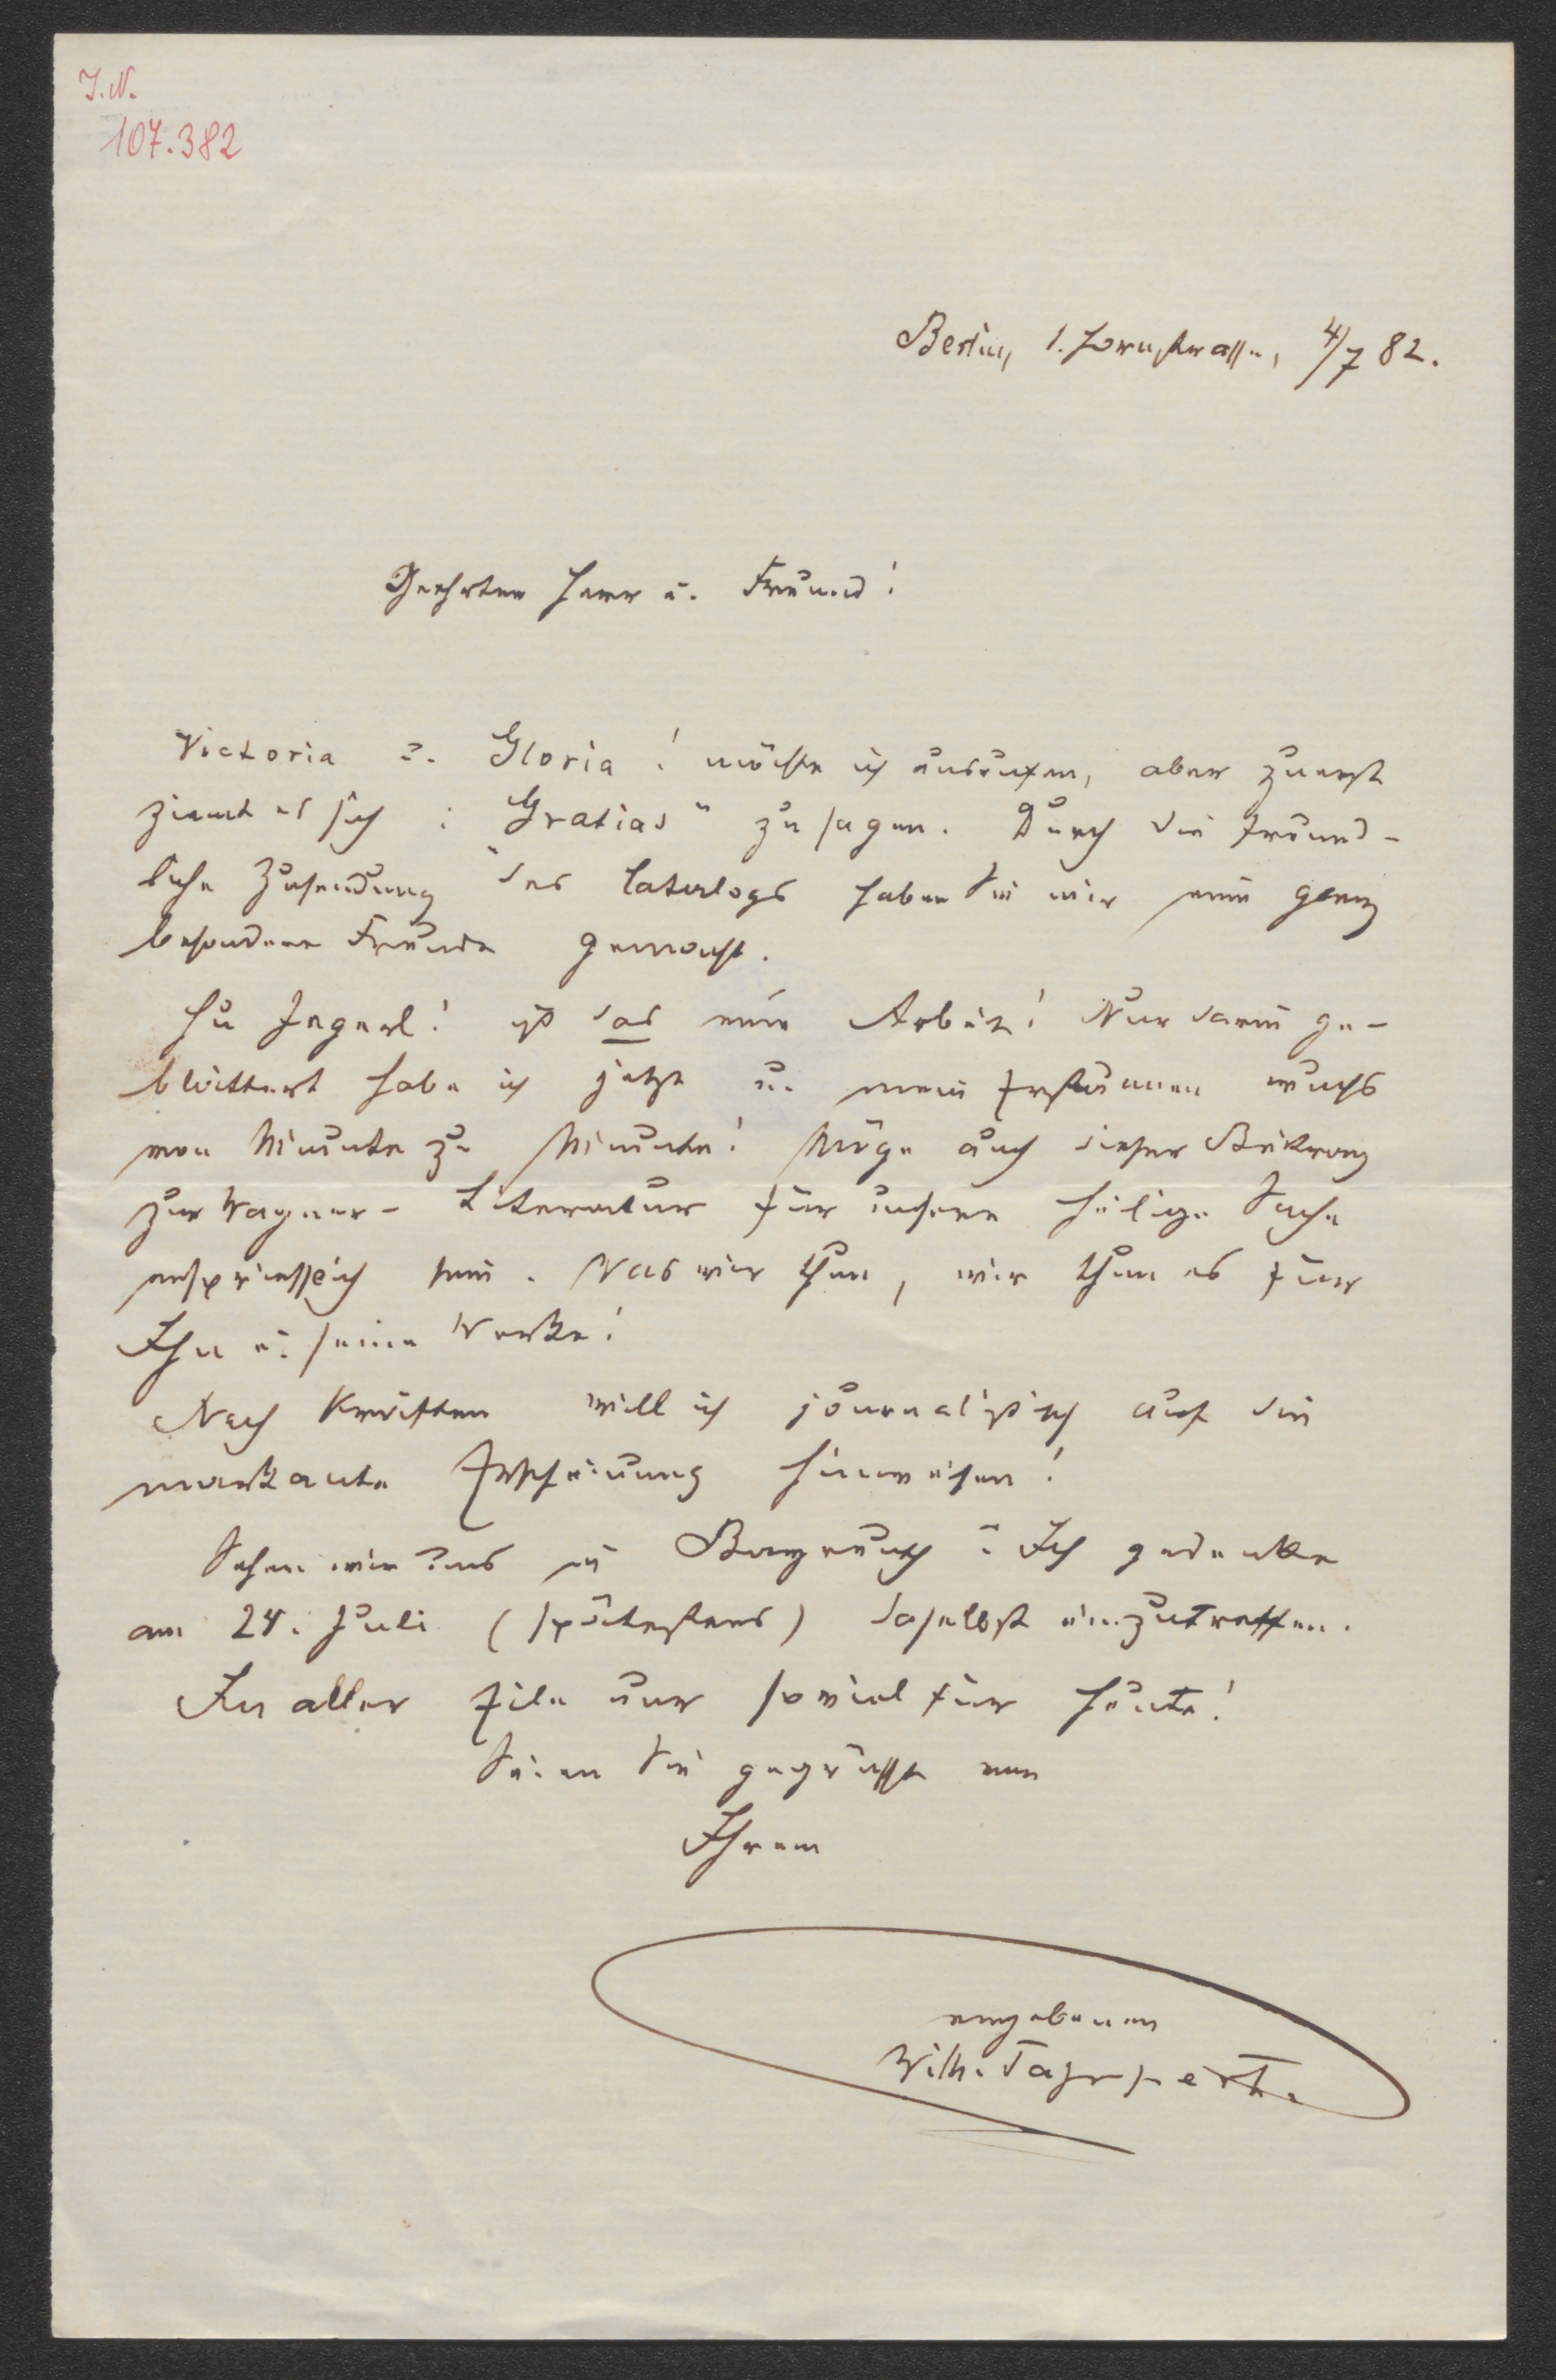 I.N.
107.382
Berlin, 1. Hornstrasse, 4/7 82.
Geehrter Herr u. Freund!
Victoria u. Gloria! möchte ich ausrufen, aber zuerst
ziemt es sich: „Gratias“ zu sagen. Durch die freund-
liche Zusendung des Catalogs haben Sie mir eine ganz
besondere Freude gemacht.
ist das eine Arbeit! Nur darin ge-
blättert habe ich jetzt u. mein Erstaunen wuchs
von Minute zu Minute! Möge auch dieser Beitrag
zur Wagner-Literatur für unsere heilige Sache
erspriesslich sein. Was wir thun, wir thun es für
Ihn u. seine Werke!
Nach Kräften will ich journalistisch auf die
markante Erscheinung hinweisen!
Sehen wir uns in Bayreuth? Ich gedenke
am 24. Juli (spätestens) daselbst einzutreffen.
In aller Eile nur soviel für heute!
Seien Sie gegrüsst von
Ihrem
ergebenen
Wilh. Tappert.